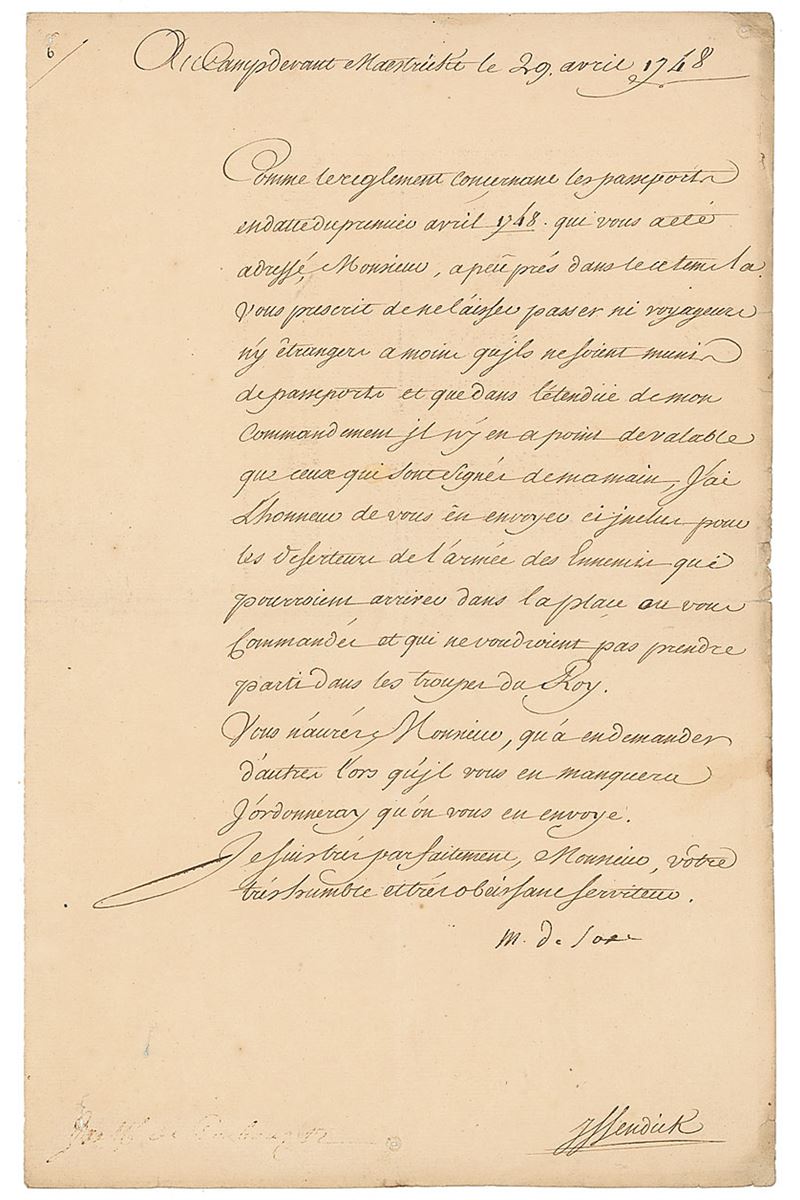 6
Au Camp devant Maestrickt le 29. avril 1748
Comme le reglement concernant les passeports
en datte du premier avril 1748. qui vous a eté
adressé, Monsieur, a peu prés dans ce tems la.
Vous prescrit de ne laisser passer ni voyageurs
n'y êtrangers a moins qu'jls ne soient munis
de passeports et que dans l'étendüe de mon
Commandement jl n'y en a point de valable
que ceux qui sont signés de ma main, J'ai
L'honneur de vous en envoyer cijnclus pour
les deserteurs de l'armée des Ennemis qui
pourroient arriver dans la place ou vous
Commandés et qui ne voudroient pas prendre
parti dans les troupes du Roy.
Vous n'aurés, Monsieur, qu'à en demander
d'autres lors qu'jl vous en manquera
J'ordonneray qu'on vous en envoye.
Je suis trés parfaitement, Monsieur, vôtre
trés humble et trés obeissant serviteur.
M. de Saxe